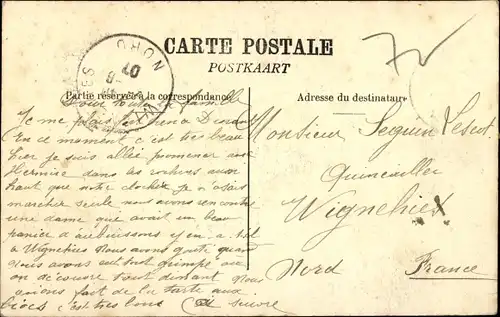 CARTE POSTALE
POSTKAART
Partie réservée à la correspondance
Adresse du destinataire
NORD
07
Pour toute la famille
Je me plais très bien à Dinant
En ce moment c'est très beau
hier je suis allée promener avec
Hermise dans les rochers aussi
haut que notre clocher je n'osais
marcher seule nous avons rencontré
une dame qui avait un beau
panier d'
à Wignehies Nous avons goûté quand
nous avons eut tout grimpé
on découvre tout dinant Nous
avions fait de la tarte aux
c'est très bons à suivre
Monsieur Seguin Lescut
Quincailler
Wignehies
Nord France